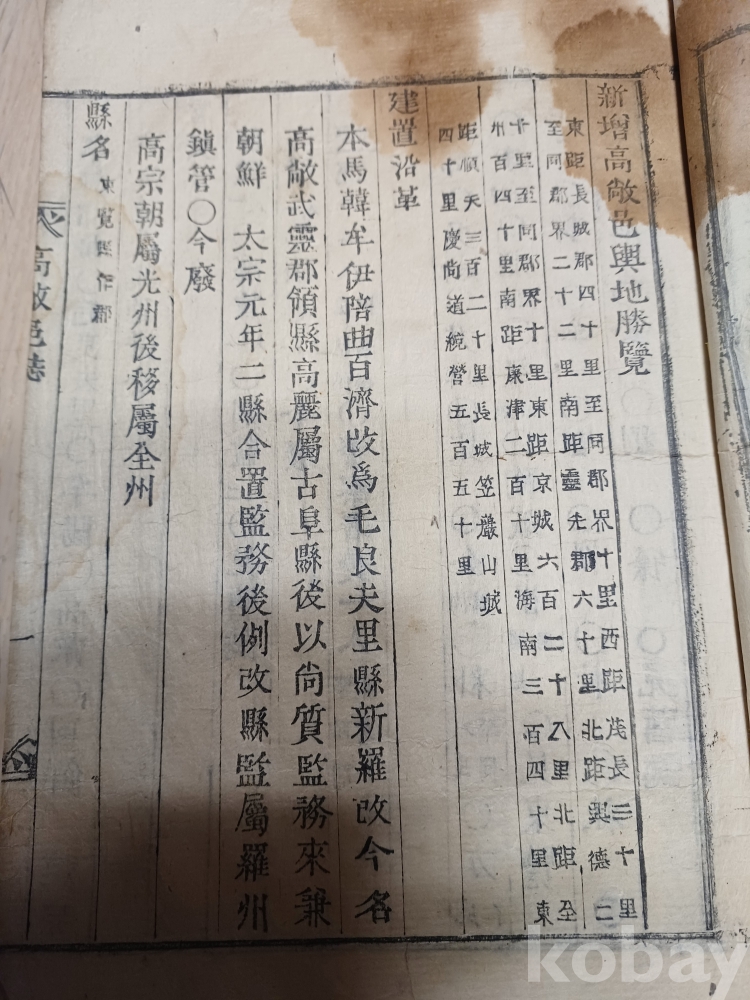 新增高敞邑輿地勝覽
東距長城郡四十里至同郡界十里西距茂長三十里
至同郡界二十二里南距靈光郡六十里北距興德二
十里至同郡界十里東距京城六百二十八里北距全
州百四十里南距康津二百十里海南三百四十里東
距順天三百二十里長城笠巖山城
四十里慶尙道統營五百五十里
建置沿革
本馬韓牟伊陪曲百濟改爲毛良夫里縣新羅改今名
高敞武靈郡領縣高麗屬古阜縣後以尙質監務來兼
朝鮮 太宗元年二縣合置監務後例改縣監屬羅州
鎭管○今廢
高宗朝屬光州後移屬全州
縣名 東覽作郡
高敞邑誌
一
kobay